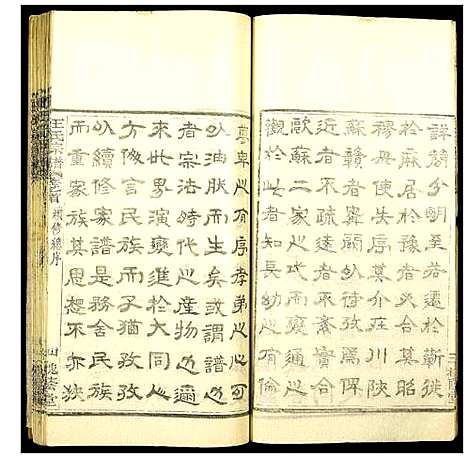 詳簡分明至若遷於蘄徙
於麻居於豫者合其昭
穆毋使失序其介在川陝
蘇贛者寧闕以待攷焉俾
近者不疏遠者不紊實合
歐蘇二家之式而爰通之
觀於此者知長幼之有倫
尊卑之有序孝弟之心可
以油然而生矣或謂譜之
者宗法時代之產物也邇
來世界演變進於大同
方倡言民族而子猶孜孜
以續修家譜是務舍民族
而重家族其思想不亦狹
王氏宗譜 卷之首 續修總序
三槐堂